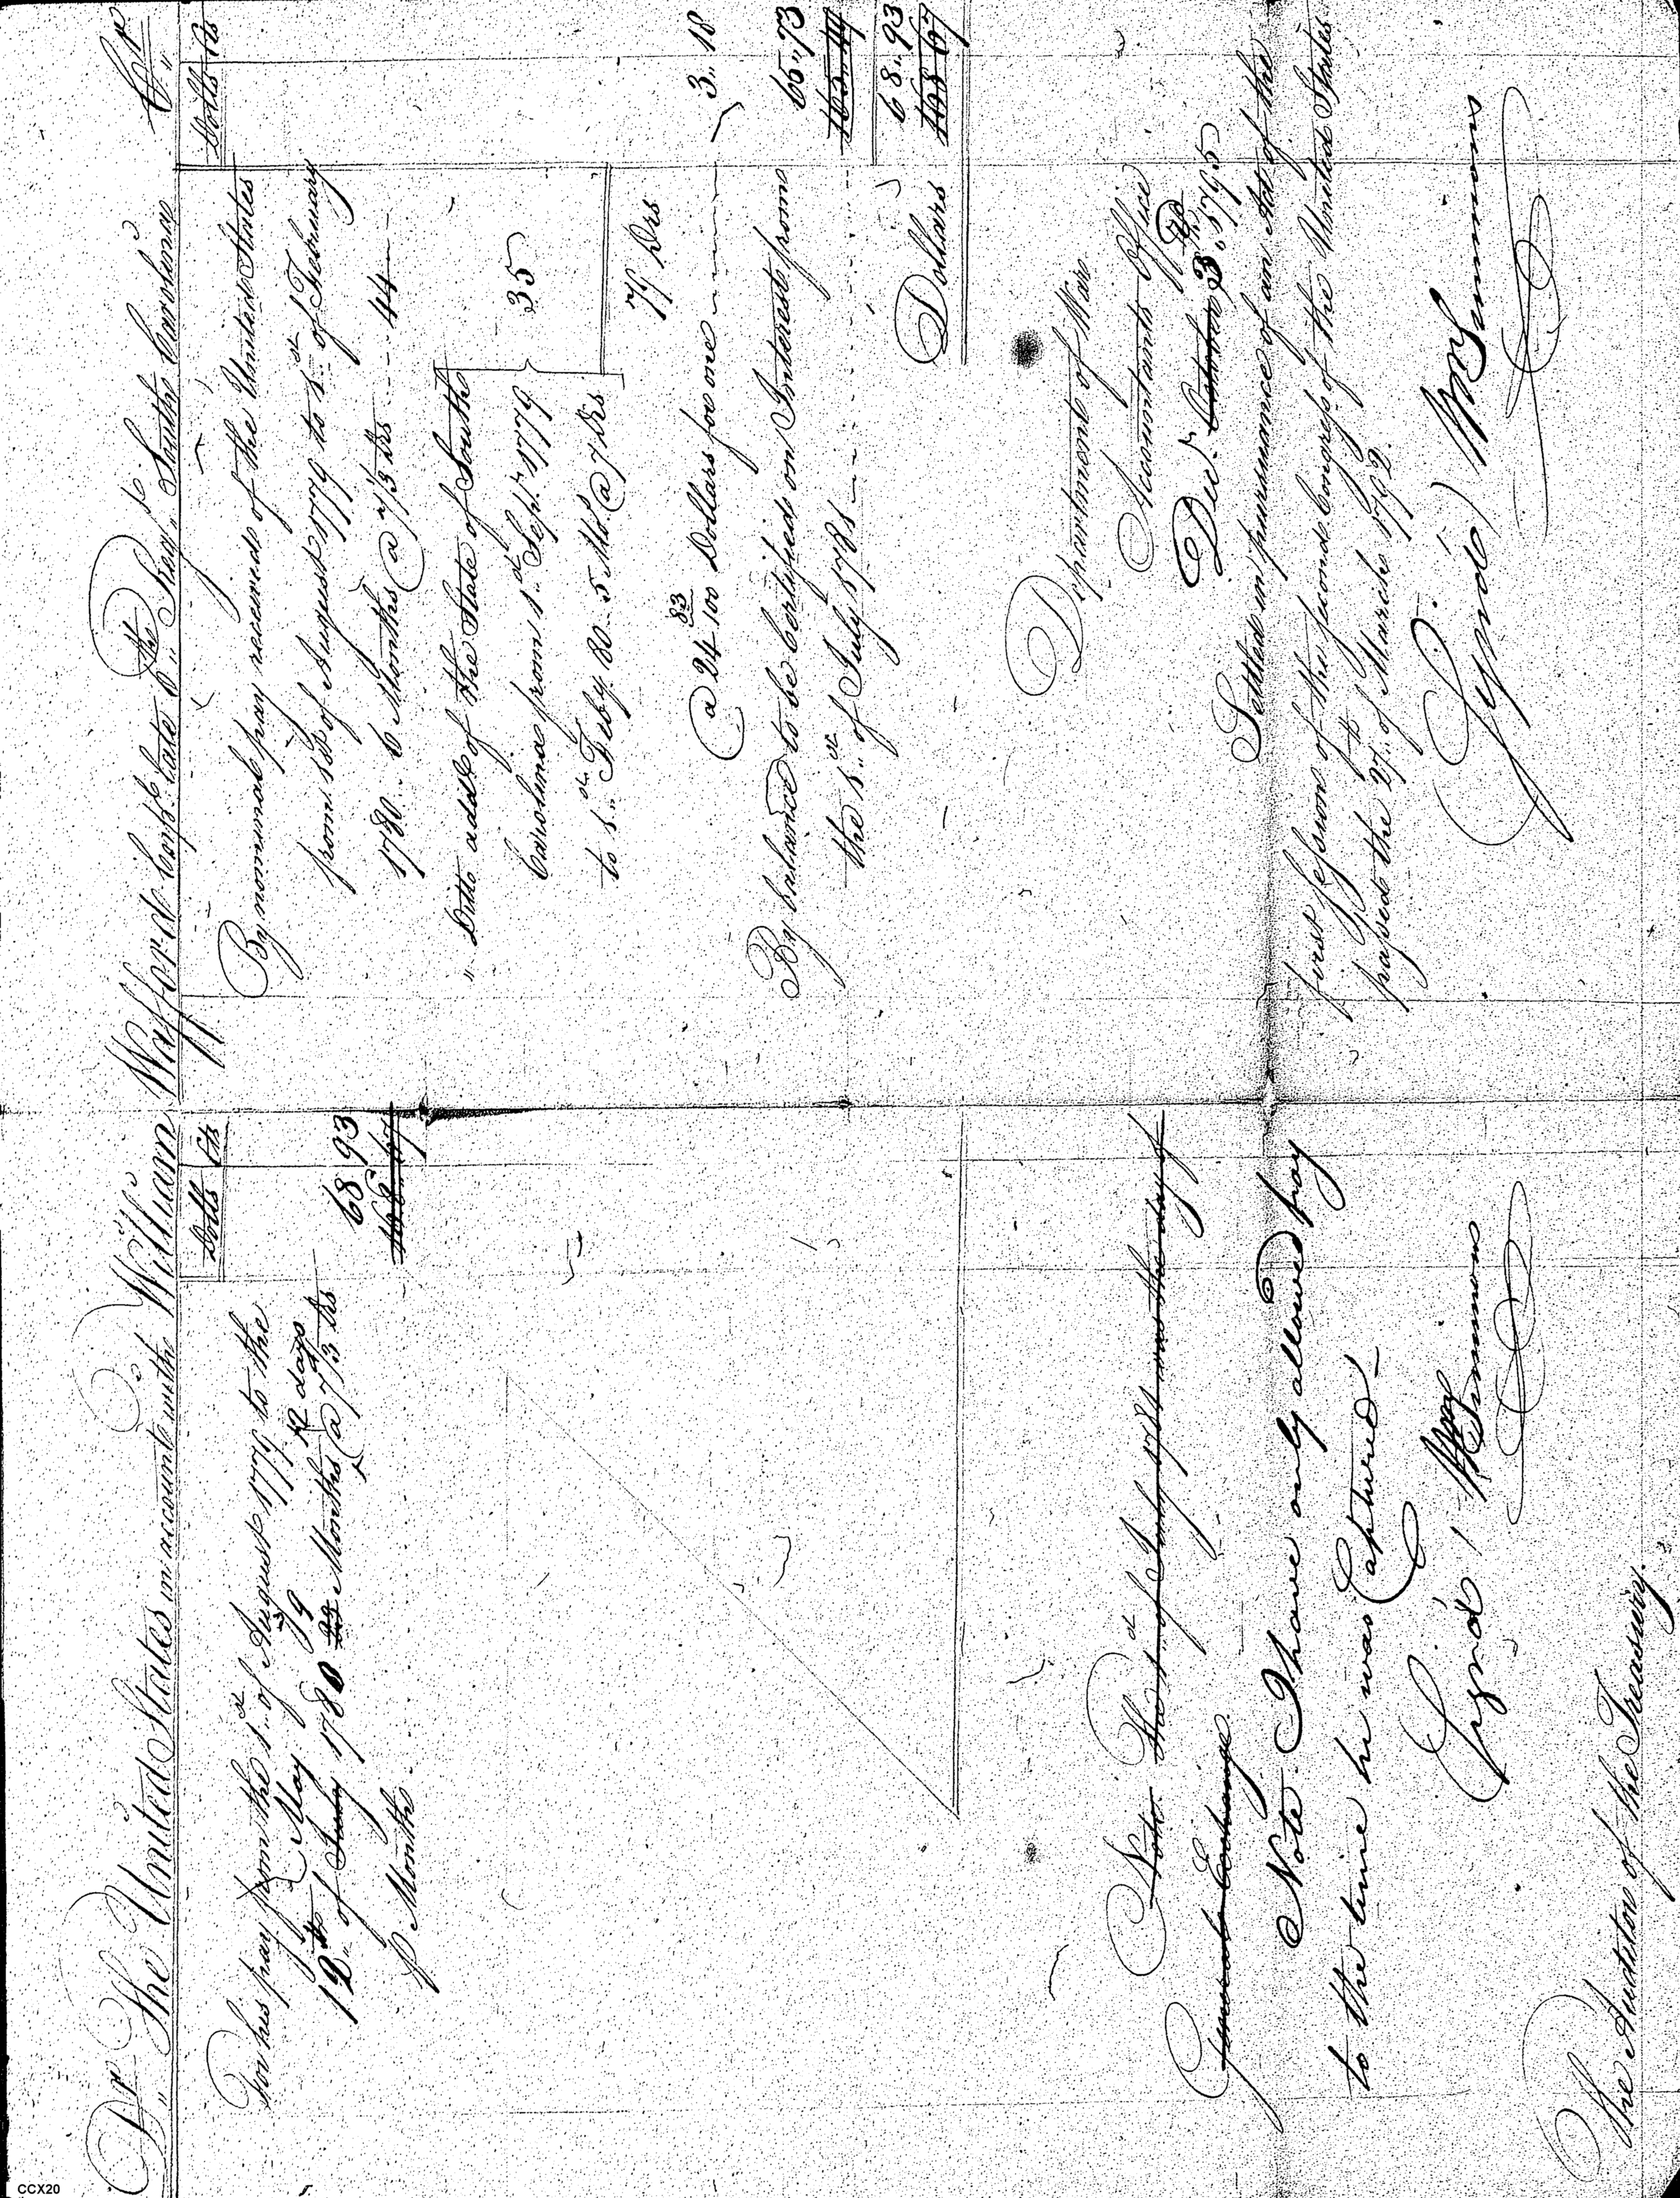 Dr The United States in account with William Wafford Corpl late 6th Regt South Carolina Cr
Dolls Cts
For his pay from the 1st of August 1779 to the
May 9 12 days
12th of July 1780 23 Months @ 7 1/3 Drs
P Month
68 93
168 67
Note The 1st of July 1781 was the day of
General Exchange
Note I have only allowed pay
to the time he was Captured
Signd / Wm Simmons
The Auditor of the Treasury.
Dolls Cts
By nominal pay received of the United States
from 1st of August 1779 to 1st of February
1780 .. 6 Months @ 7 1/3 Drs - - - 44
" Ditto addl of the State of South
Carolina from 1st Sept 1779
to 1st Feby 80 .. 5 Mos @ 7 Drs
35
79 Drs
@ 24 83/100 Dollars for one
3 " 18
By balance to be Certified on Interest from
the 1st of July 1781
65 " 73
165 " 49
Dollars
68 " 93
168 67
Department of War
Accountants Office
Decr October 3rd 1795
Settled in pursuance of an Act of the
first Session of the second Congress of the United States
passed the 27th of March 1792.
(Signd) Wm Simmons
CCX20